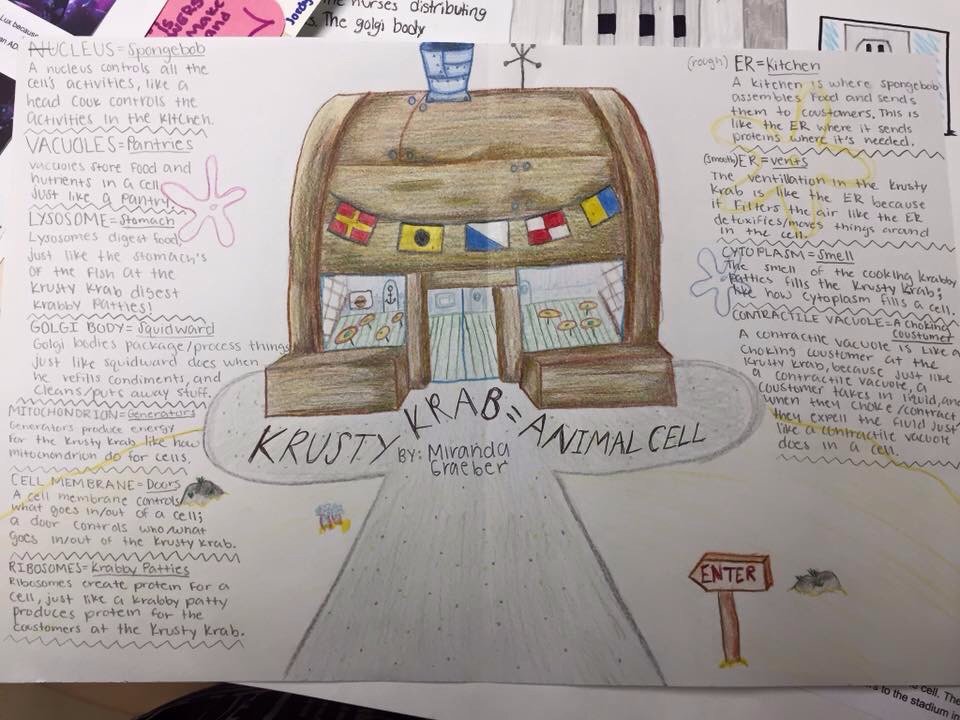 Lux because
an AD.
nurses distributing
The golgi body
NUCLEUS = Spongebob
A nucleus controls all the
cell's activities, like a
head cook controls the
activities in the kitchen.
VACUOLES = Pantries
Vacuoles store food and
nutrients in a cell,
just like a pantry.
LYSOSOME = Stomach
Lysosomes digest food
just like the stomach's
of the fish at the
Krusty Krab digest
Krabby Patties!
GOLGI BODY = Squidward
Golgi bodies package/process things
just like squidward does when
he refills condiments, and
cleans/puts away stuff.
MITOCHONDRION = Generators
Generators produce energy
for the Krusty Krab like how
mitochondrion do for cells.
CELL MEMBRANE = Doors
A cell membrane controls
what goes in/out of a cell;
a door controls who/what
goes in/out of the Krusty Krab.
RIBOSOMES = Krabby Patties
Ribosomes create protein for a
cell, just like a Krabby patty
produces protein for the
coustomers at the Krusty Krab.
KRUSTY KRAB = ANIMAL CELL
BY: Miranda
Graeber
ENTER
(rough) ER = Kitchen
A kitchen is where spongebob
assembles food and sends
them to coustomers. This is
like the ER where it sends
proteins where it's needed.
(smooth) ER = vents
The ventillation in the Krusty
Krab is like the ER because
it filters the air like the ER
detoxifies/moves things around
in the cell.
CYTOPLASM = Smell
The smell of the cooking krabby
patties fills the Krusty Krab;
like how cytoplasm fills a cell.
CONTRACTILE VACUOLE = A choking
coustumer
A contractile vacuole is like a
choking coustomer at the
Krusty Krab, because just like
a contractile vacuole, a
coustomer takes in liquid, and
when them choke/contract
they expell the fluid just
like a contractile vacuole
does in a cell.
cell. The
to the stadium in